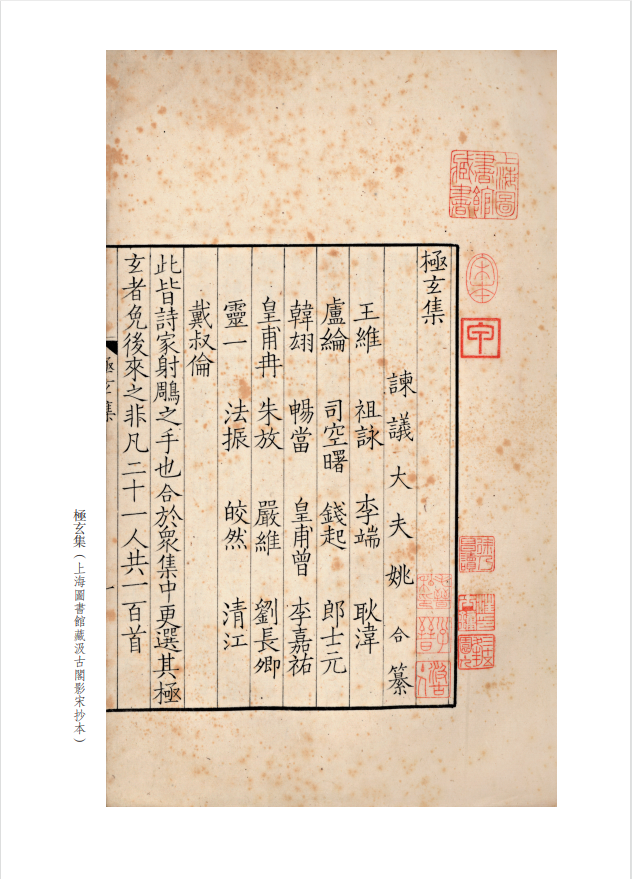 上海圖書館藏書
宋本
甲
極玄集
諫議大夫姚合纂
王維 祖詠 李端 耿湋
盧綸 司空曙 錢起 郎士元
韓翃 暢當 皇甫曾 李嘉祐
皇甫冉 朱放 嚴維 劉長卿
靈一 法振 皎然 清江
戴叔倫
此皆詩家射鵰之手也合於眾集中更選其極
玄者免後來之非凡二十一人共一百首
極玄集
一
極玄集(上海圖書館藏汲古閣影宋抄本)